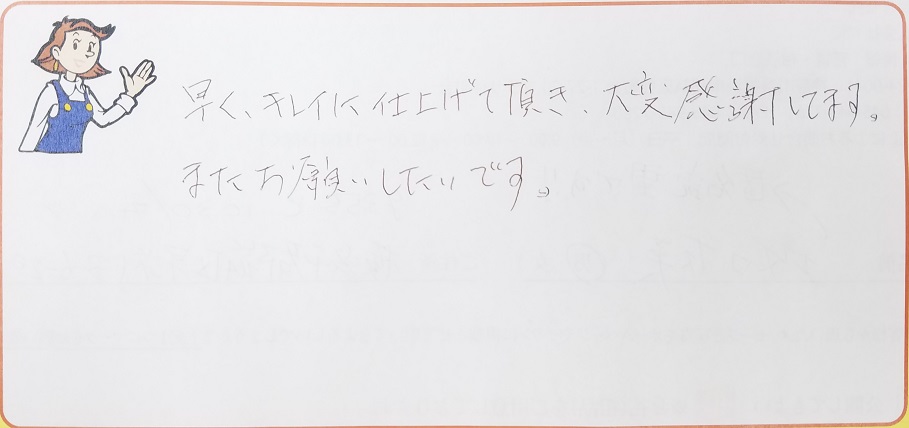 早く、キレイに仕上げて頂き、大変感謝してます。
またお願いしたいです。